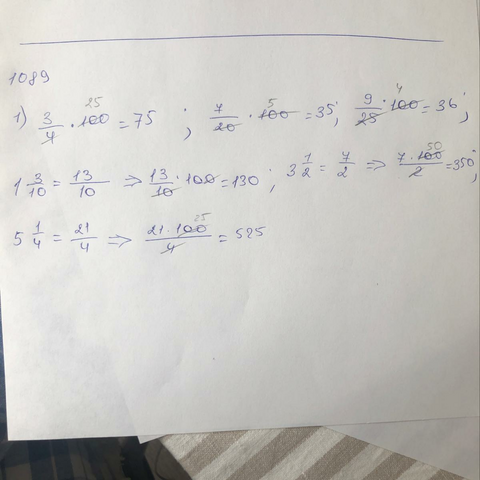 1089
1) 3/4 · 100 25 = 75 ; 7/20 · 100 5 = 35 ; 9/25 · 100 4 = 36 ;
1 3/10 = 13/10 ⇒ 13/10 · 100 = 130 ; 3 1/2 = 7/2 ⇒ 7 · 100 50/2 = 350 ;
5 1/4 = 21/4 ⇒ 21 · 100 25/4 = 525